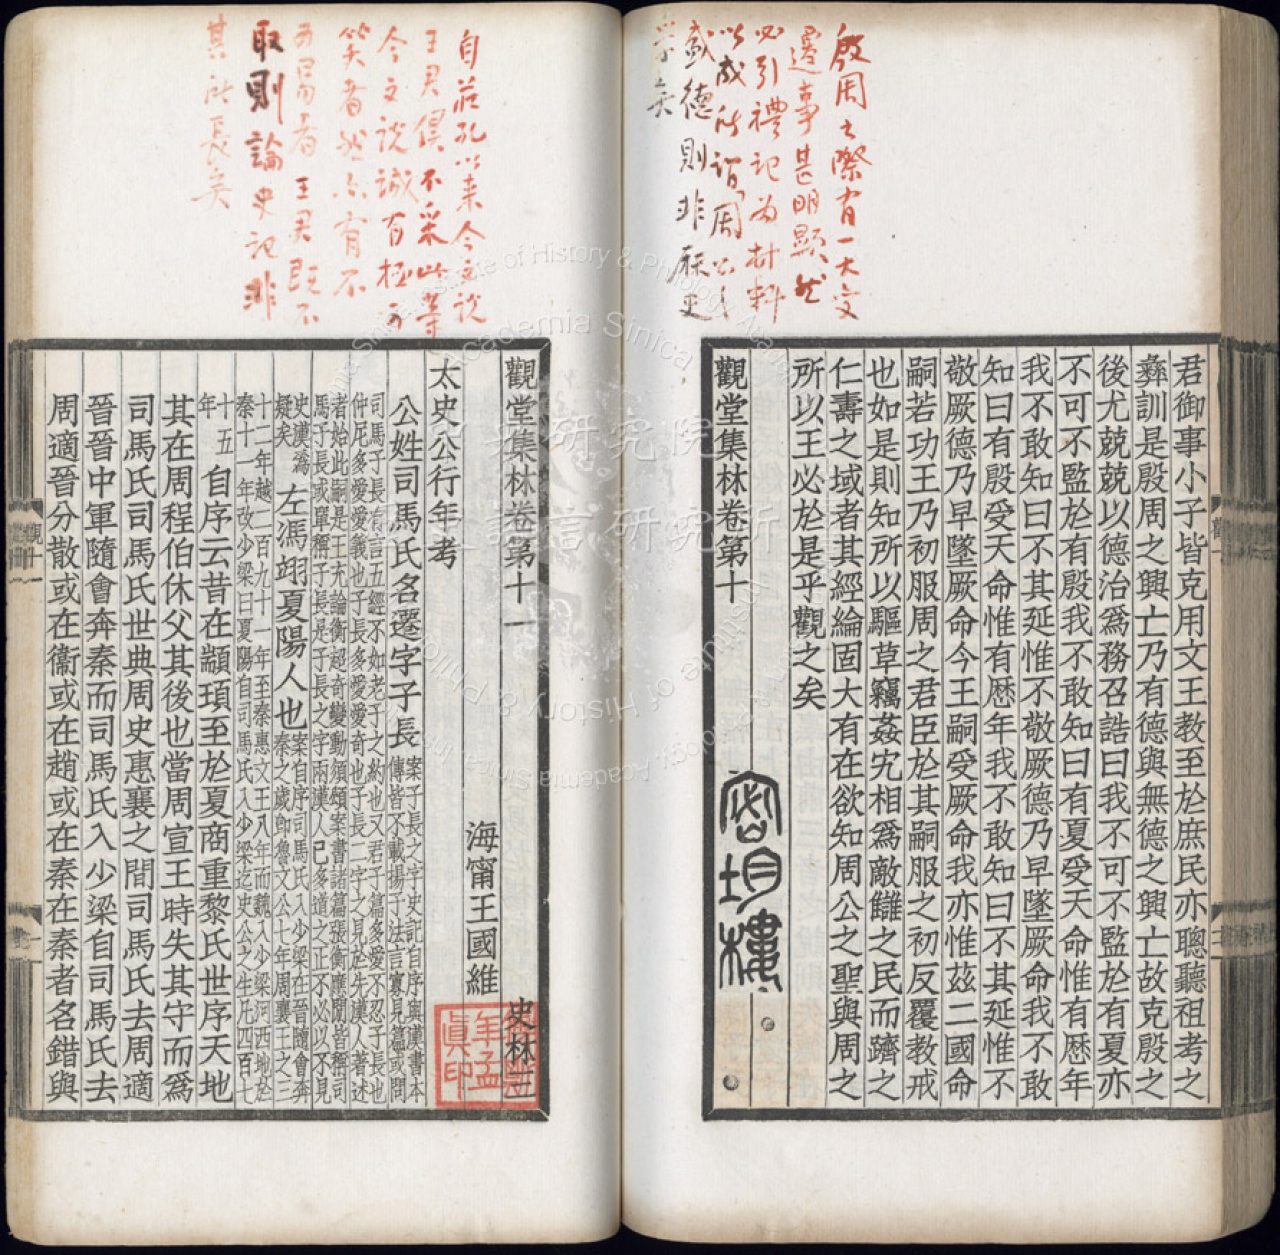 殷周之際有一大变
遷事甚明顯然
必引禮記為材料
以成所謂周公之
盛德則非歷史
学矣
君御事小子皆克用文王教至於庶民亦聰聽祖考之
彝訓是殷周之興亡乃有德與無德之興亡故克殷之
後尤兢兢以德治爲務召誥曰我不可不監於有夏亦
不可不監於有殷我不敢知曰有夏受天命惟有歷年
我不敢知曰不其延惟不敬厥德乃早墜厥命我不敢
知曰有殷受天命惟有歷年我不敢知曰不其延惟不
敬厥德乃早墜厥命今王嗣受厥命我亦惟茲二國命
嗣若功王乃初服周之君臣於其嗣服之初反覆教戒
也如是則知所以驅草竊姦宄相爲敵讎之民而躋之
仁壽之域者其經綸固大有在欲知周公之聖與周之
所以王必於是乎觀之矣
觀堂集林卷第十
自莊孔以来今文說
王君俱不采此等
今文說誠有極可
笑者然亦有不
可易者王君既不
取則論史記非
其所長矣
觀堂集林卷第十一
史林三
海甯王國維
太史公行年考
公姓司馬氏名遷字子長
案子長之字史記自序與漢書本
傳皆不載揚子法言寡見篇或問
司馬子長有言五經不如老子之約也又君子篇多愛不忍子長也
仲尼多愛愛義也子長多愛愛奇也子長二字之見於先漢人著述
者始此嗣是王充論衡超奇變動須頌案書諸篇張衡應閒皆稱司
馬子長或單稱子長是子長之字兩漢人已多道之正不必以不見
史漢爲
疑矣
左馮翊夏陽人也
案自序司馬氏入少梁在晉隨會奔
秦之歲即魯文公七年周襄王之三
十二年越二百九十一年至秦惠文王八年而魏入少梁河西地於
秦十一年改少梁曰夏陽自司馬氏入少梁迄史公之生凡四百七
十五
年
自序云昔在顓頊至於夏商重黎氏世序天地
其在周程伯休父其後也當周宣王時失其守而爲
司馬氏司馬氏世典周史惠襄之間司馬氏去周適
晉晉中軍隨會奔秦而司馬氏入少梁自司馬氏去
周適晉分散或在衞或在趙或在秦在秦者名錯與
年孟
眞印